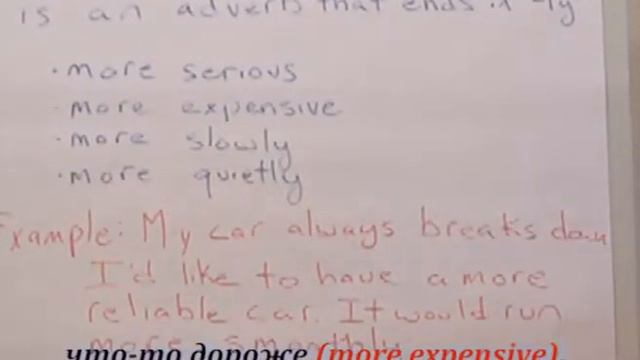 is an adverb that ends in -ly
• more serious
• more expensive
• more slowly
• more quietly
Example: My car always breaks down
I'd like to have a more
reliable car. It would run
more smoothly
что-то дороже (more expensive)